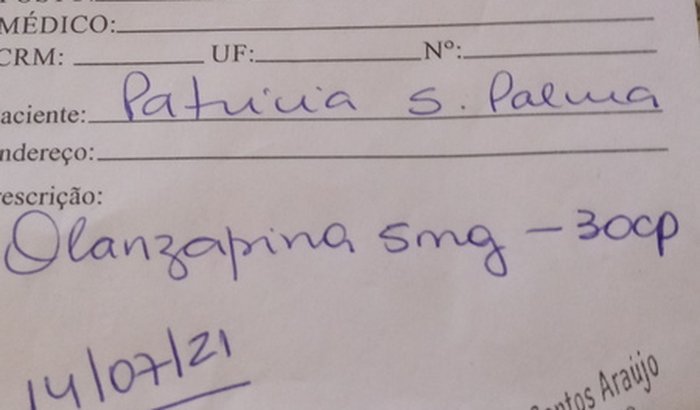 MÉDICO:
CRM: UF: Nº:
aciente: Patricia S. Palma
ndereço:
rescrição:
Olanzapina 5mg - 30cp
14/07/21
Santos Araújo